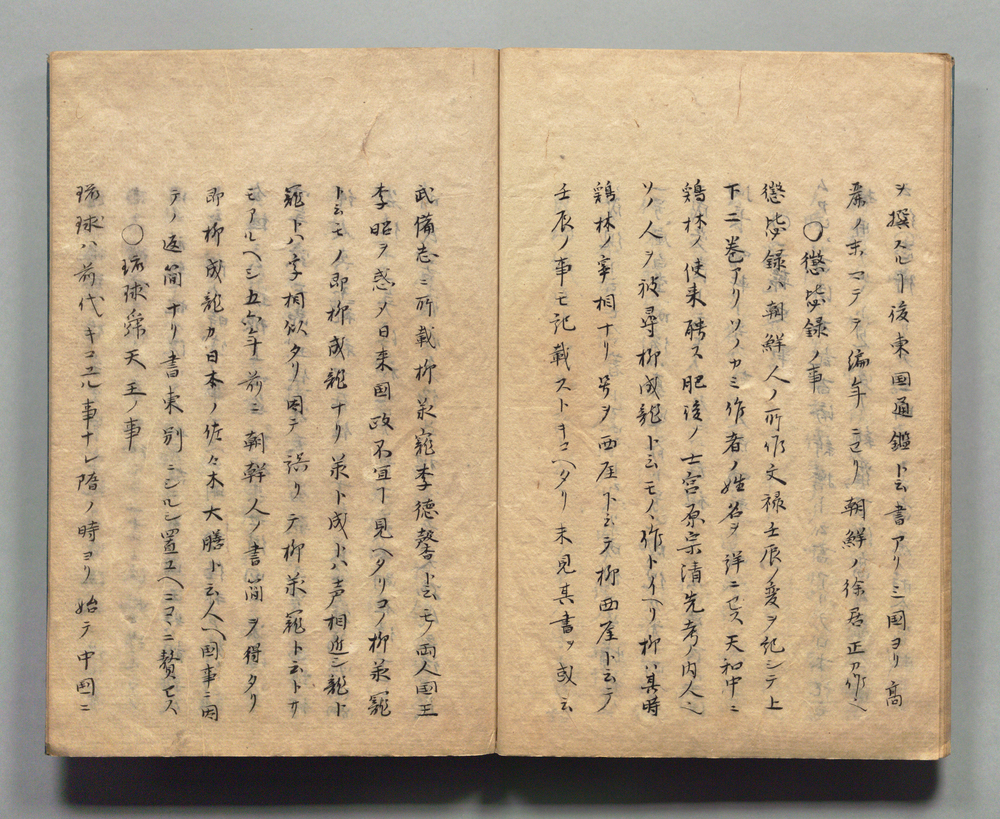 ヲ撰スル後東国通鑑ト云書アリ三国ヨリ高
麗ノ末マテテ編年ニセリ朝鮮ノ徐居正カ作ヘ
〇懲毖録ノ事
懲毖録ハ朝鮮人ノ所作文禄壬辰ノ変ヲ記シテ上
下二巻アリソノカミ作者ノ姓名ヲ詳ニセス天和中ニ
鶏林ノ使来聘ス肥後ノ士宮原宗清先考ノ内人ヘ
ソノ人ヲ被尋柳成龍ト云モノヽ作トイヘリ柳ハ其時
鶏林ノ宰相ナリ号ヲ西厓ト云テ柳西厓ト云テ
壬辰ノ事モ記載ストキコヘタリ未見其書ッ或云
武備志ニ所載柳承寵李徳馨ト云モ両人国王
李昭ヲ惑タ日来国政不宜丁見ヘタリコノ柳承寵
ト云モノ即柳成龍ナリ承ト成トハ声相近シ龍ト
寵トハ字相似タリ因テ誤リテ柳承寵ト云トサ
モアルヘシ五六年前ニ朝鮮人ノ書簡ヲ得タリ
即柳成龍カ日本ノ佐々木大膳ト云人ヘ国事ニ因
テノ返簡ナリ書東別ニシルシ置ユヘニコヽニ贅セス
〇琉球舜天王ノ事
琉球ハ前代キコユル事ナシ隋ノ時ヨリ始テ中国ニ